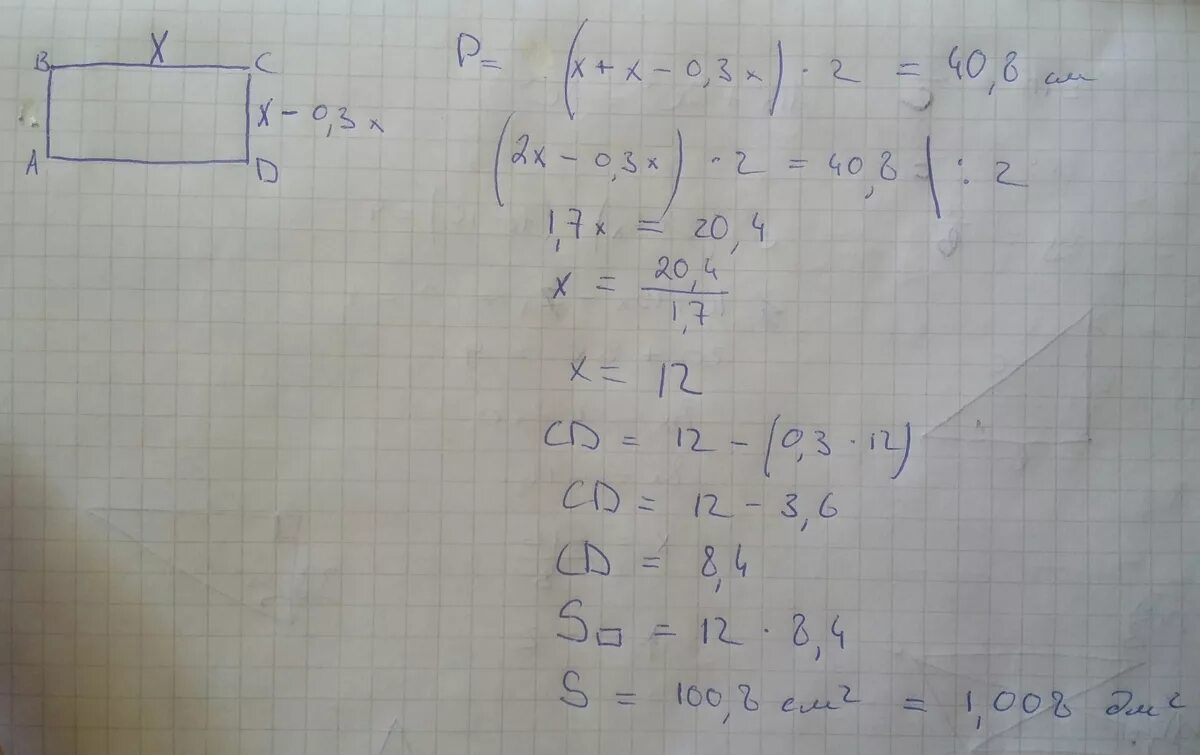 B X C
x - 0,3x
A D
P = (x + x - 0,3x) · 2 = 40,8 см
(2x - 0,3x) · 2 = 40,8 | : 2
1,7x = 20,4
x = 20,4 / 1,7
x = 12
CD = 12 - (0,3 · 12)
CD = 12 - 3,6
CD = 8,4
S▭ = 12 · 8,4
S = 100,8 см² = 1,008 дм²